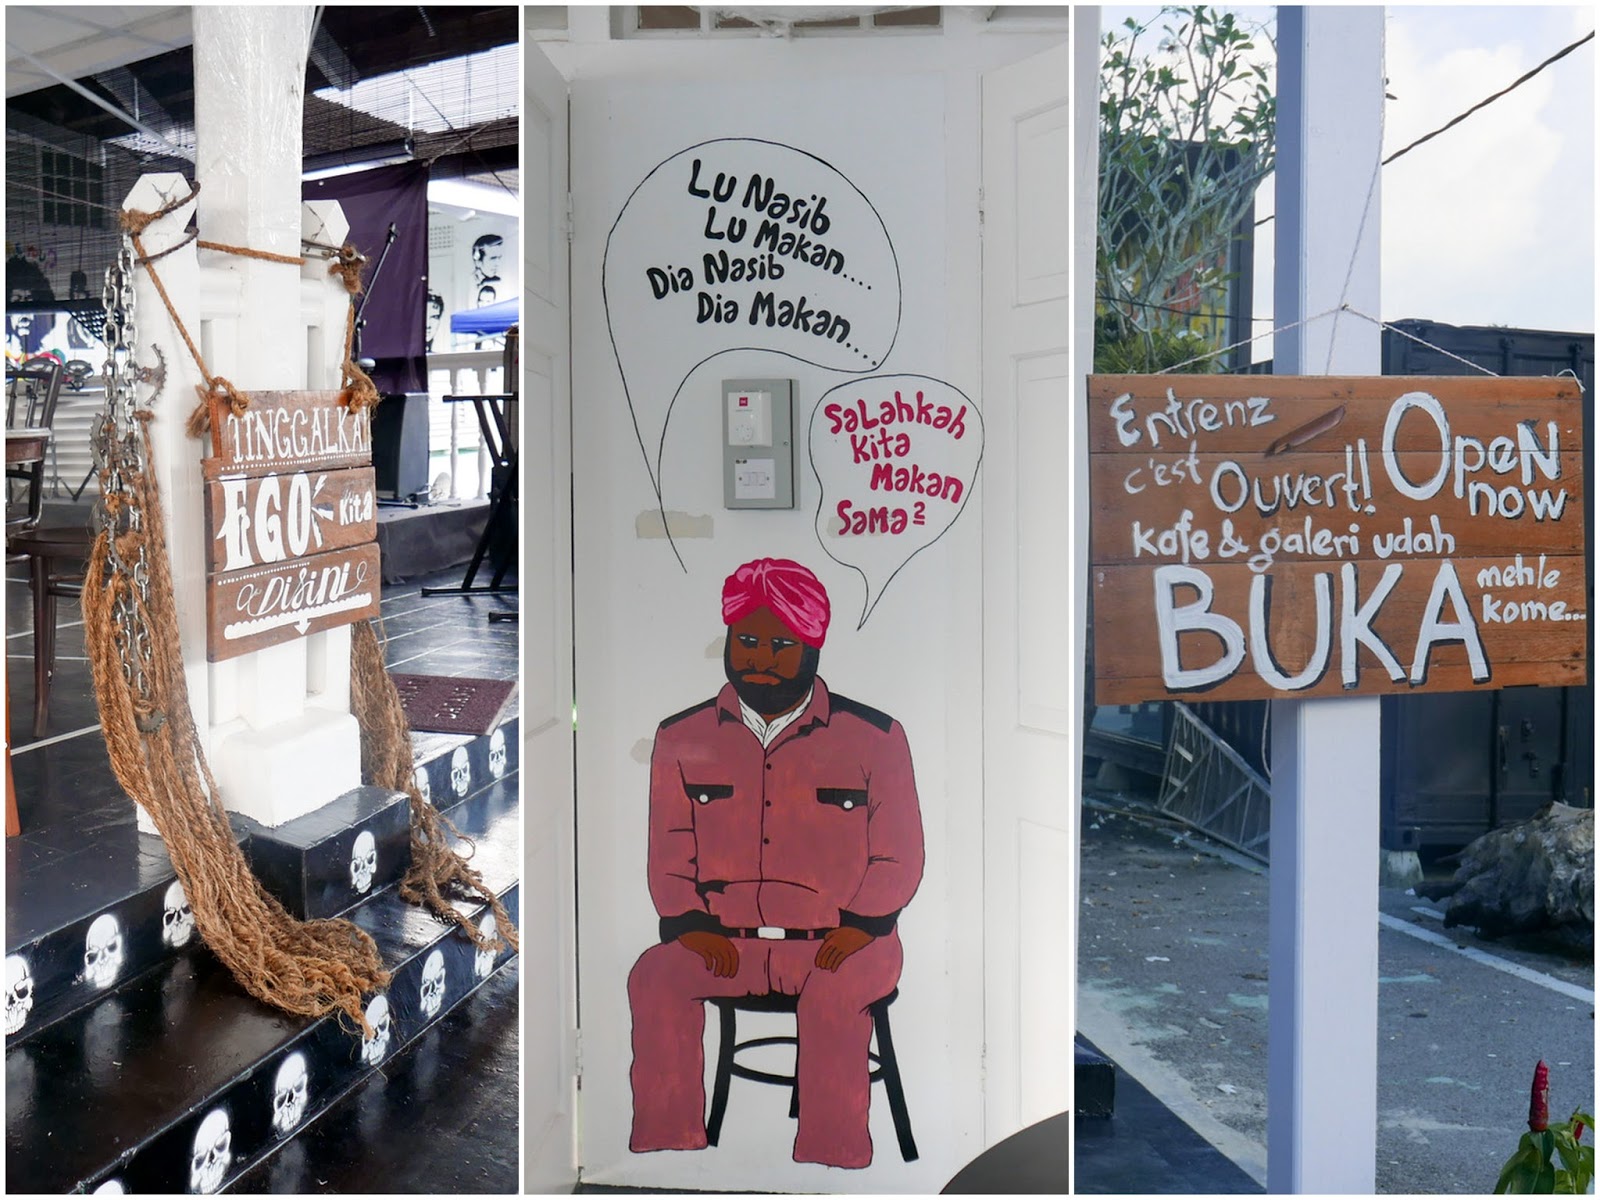 TINGGALKAN
EGO Kita
DisiNi
Lu Nasib
Lu Makan....
Dia Nasib
Dia Makan....
SaLahkah
Kita
Makan
Sama²
Entrenz
c'est Ouvert!! OpeN
now
Kafe & galeri udah
BUKA mehle
kome...